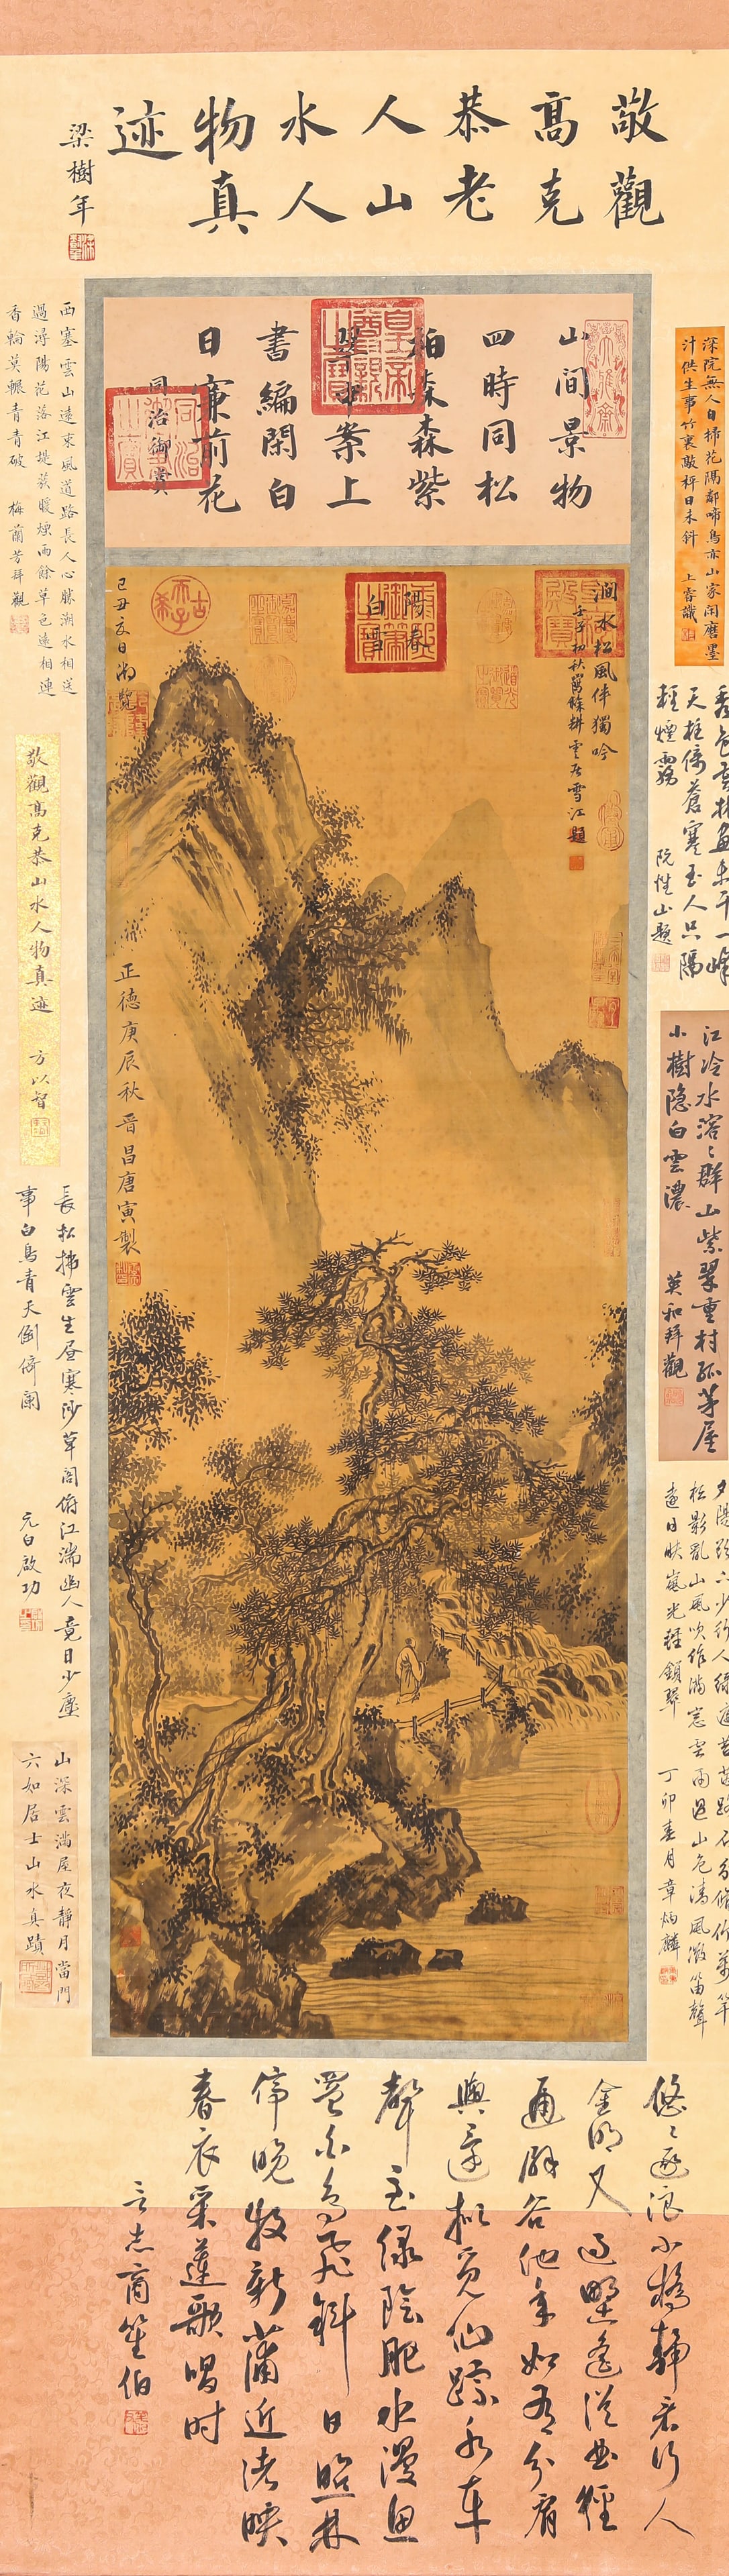 敬觀
高克
恭老
人山
水人
物真
迹
梁樹年
山間景物
四時同松
柏森森紫
翠中案上
書編閑白
日簾前花
同治御賞
深院無人自掃花隔鄰啼鳥亦山家閑磨墨
汁供生事竹裏敲枰日未斜 上睿識
西塞雲山遠東風道路長人心勝潮水相送
過潯陽花落江堤蔟暖煙雨餘草色遠相連
香輪莫輾青青破 梅蘭芳拜觀
澗水松風伴獨吟
壬子初秋舊餘耕雲居雪江題
陽春
白雪
古希天子
己丑夏日御覽
正德庚辰秋晉昌唐寅製
天柱倚蒼寒玉人只隔
輕煙霧 阮惟山題
敬觀高克恭山水人物真迹 方以智
江冷水溶溶群山紫翠重村孤茅屋
小樹隐白雲濃 英和拜觀
長松拂雲生昼寒沙草閣俯江湍幽人竟日少塵
事白鳥青天倒倚闌 元白啟功
松影亂山風吹作滿窓雲雨過山色清風微笛聲
遠日映嵐光輕鎖翠 丁卯春月章炳麟
山深雲滿屋夜靜月當門
六如居士山水真蹟
悠悠逐浪小橋靜君行人
金明又過野遙從曲徑
通歸谷他年如有分肩
輿還擬覓仙踪水車
聲
綠陰肥水漫魚
罾白鳥飛斜日照林
停晚牧新蒲近渚映
春衣采蓮歌唱時
言志商笙伯